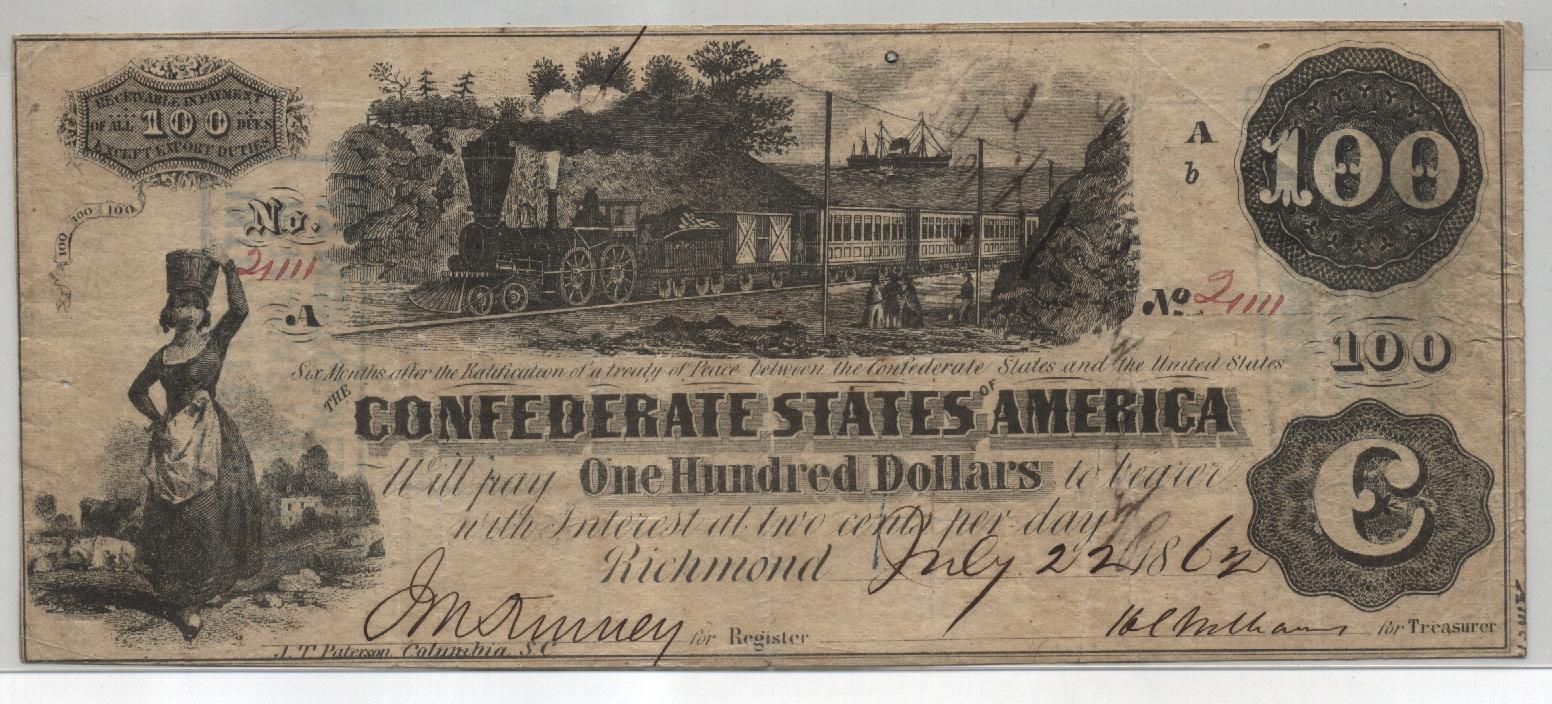 RECEIVABLE IN PAYMENT
OF ALL 100 DUES
EXCEPT EXPORT DUTIES
100 100
100
No.
21111
A
A
b
100
No 21111
100
Six Months after the Ratification of a treaty of Peace between the Confederate States and the United States
THE CONFEDERATE STATES OF AMERICA
Will pay One Hundred Dollars to bearer
with Interest at two cents per day
Richmond July 22 1862
C
for Register
for Treasurer
J. T. Paterson, Columbia, S.C.